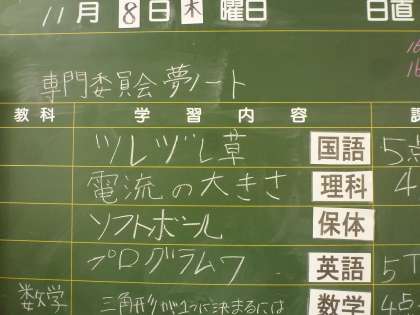 11月8日木曜日 日直
専門委員会 夢ノート
教科 学習内容
ツレヅレ草 国語 5点
電流の大きさ 理科 4
ソフトボール 保体
プログラム7 英語 5T
数学 三角形が1つに決まるには 数学 4点